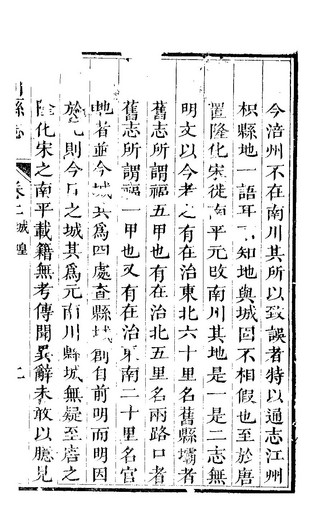 今涪州不在南川其所以致誤者特以通志江州
枳縣地一語耳 知地與城固不相假也至於唐
置隆化宋徙南平元改南川其地是一是二志無
明文以今考之有在治東北六十里名舊縣壩者
舊志所謂福五甲也有在治北五里名兩路口者
舊志所謂福一甲也又有在治東南二十里名官
地者並今城共為四處查縣城創自前明而明因
於元則今日之城其為元南川縣城無疑至唐之
隆化宋之南平載籍無考傳聞異辭未敢以臆見
縣志 卷二 城隍 二